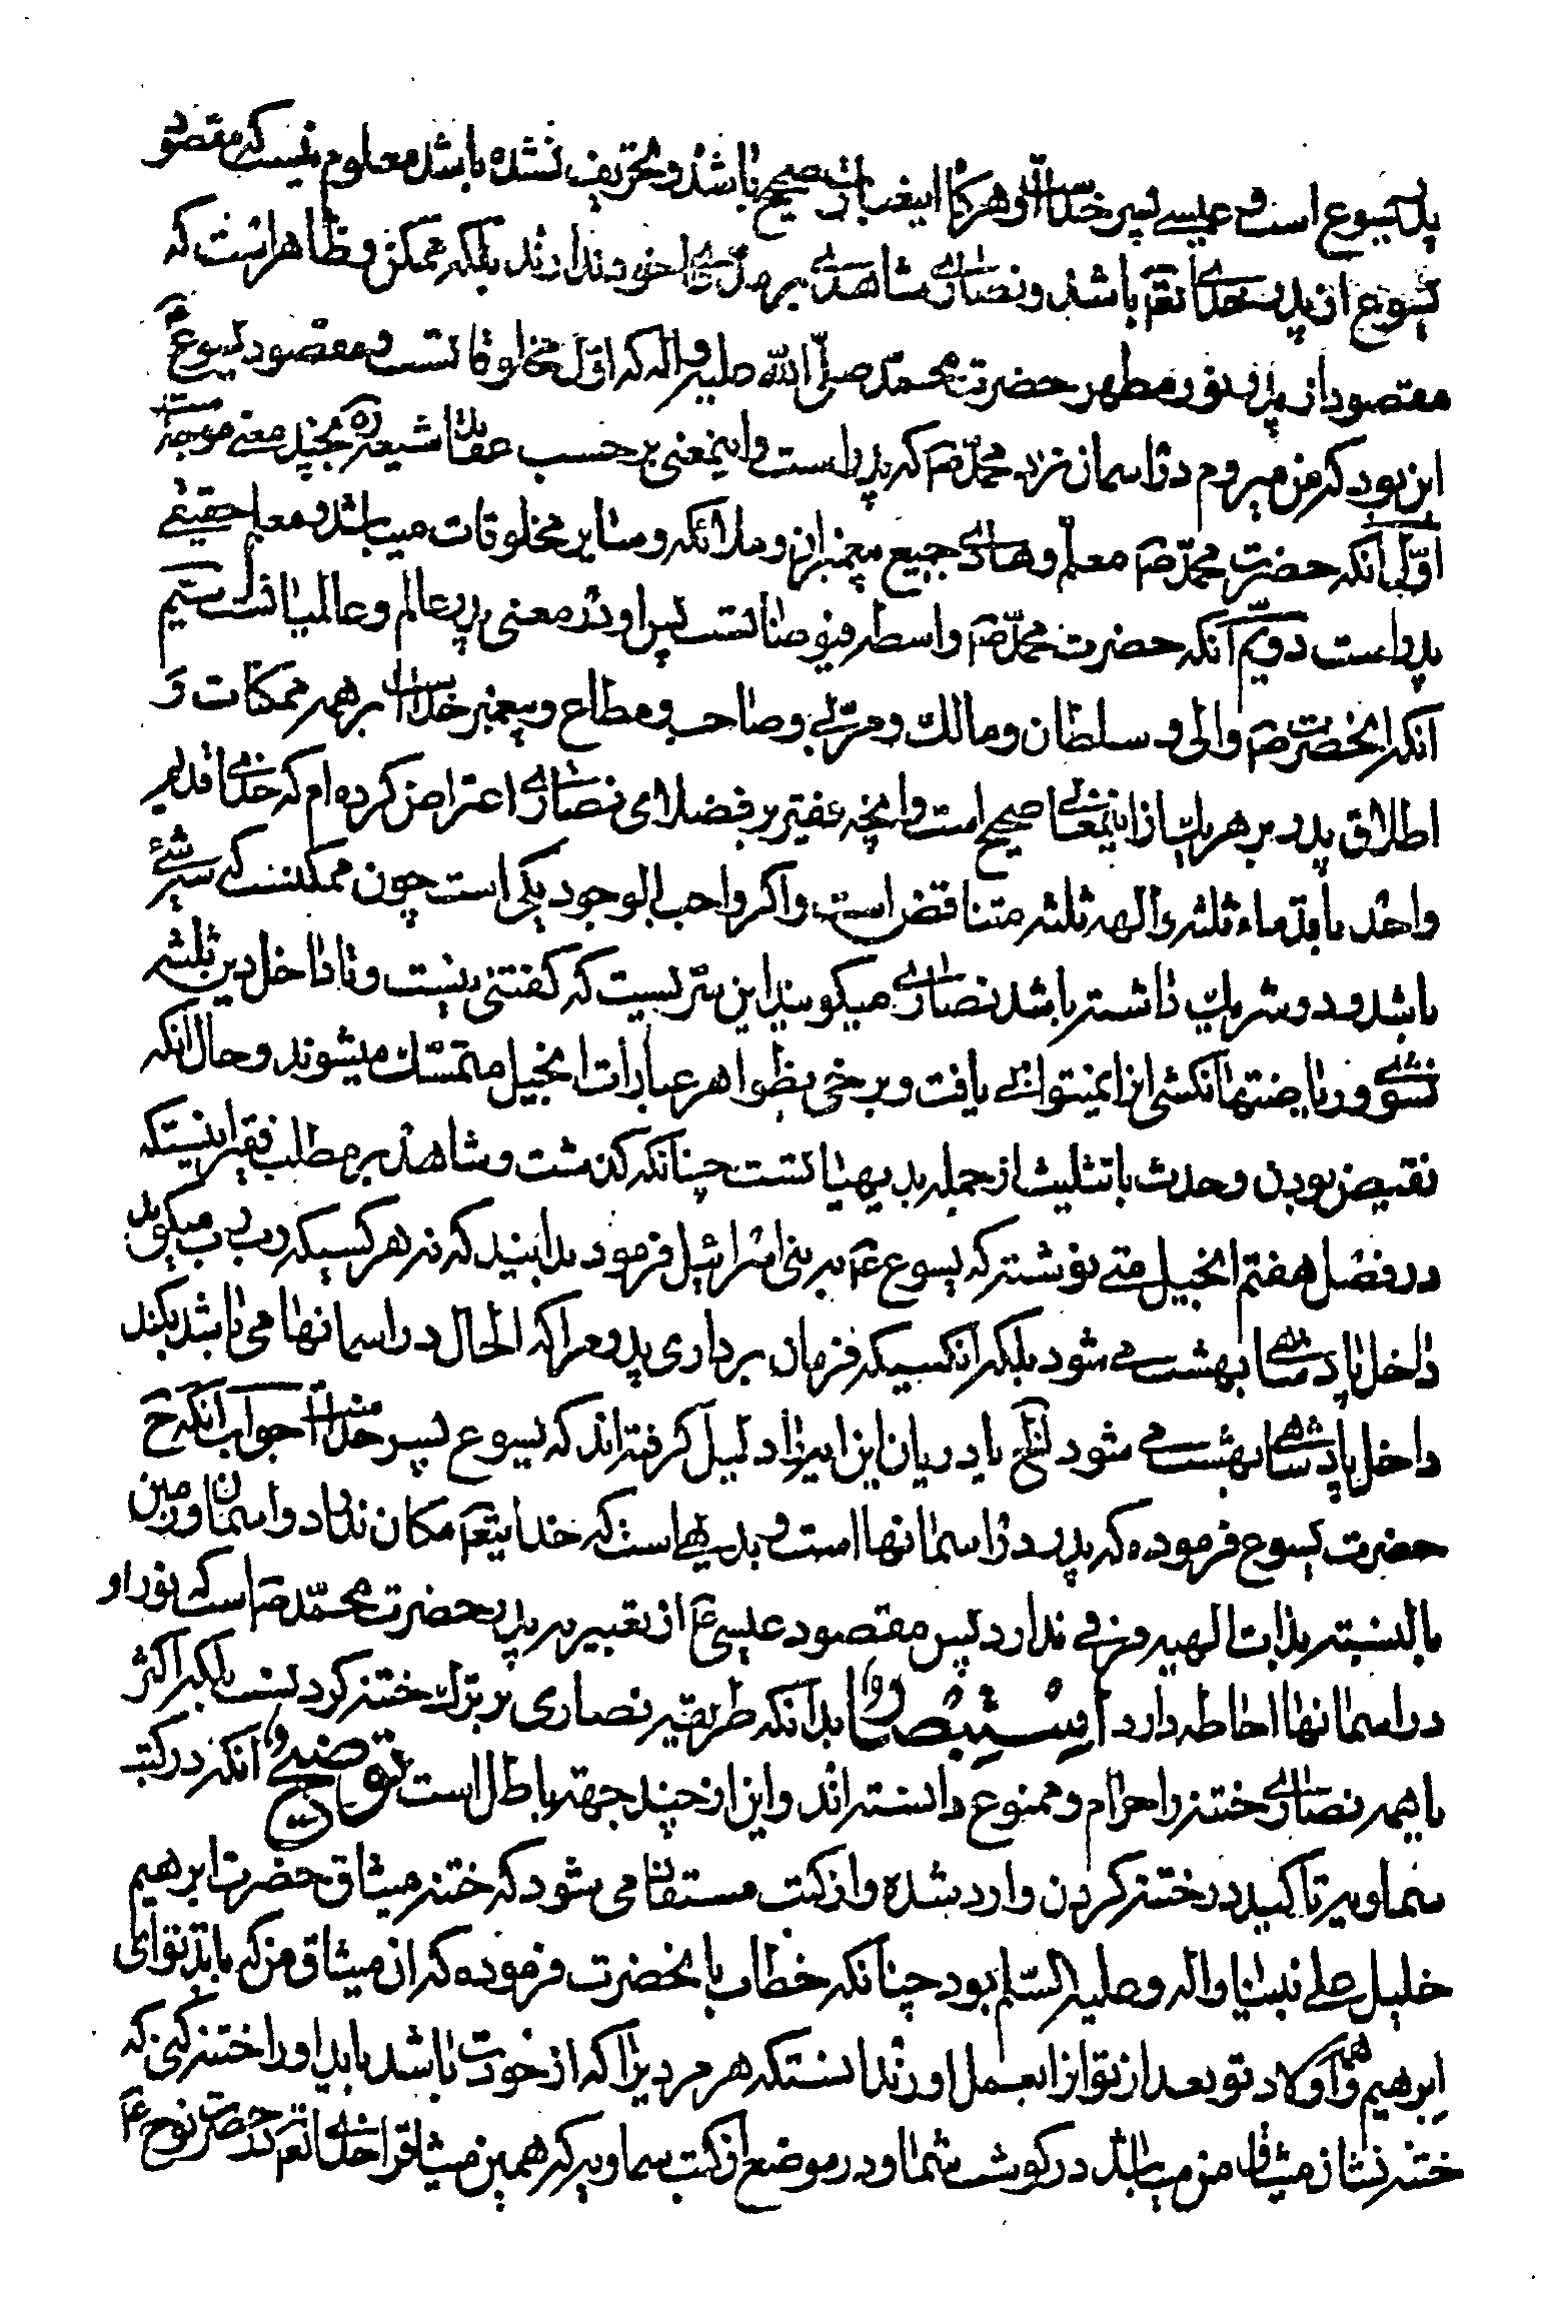 پدر یسوع است و عیسی پسر خداست و هرگاه اینعبارت صحیح باشد و تحریف نشده باشد معلوم نیست که مقصود
یسوع از پدر خدای تعم باشد و نصاری شاهدی بر مدعای خود ندارند بلکه ممکن و ظاهر انست که
مقصود از پدر نور مطهر حضرت محمد صلی الله علیه و اله که اول مخلوقاتست و مقصود یسوع ع
این بود که من میروم در اسمان نزد محمد ص که پدر است و اینمعنی بر حسب عقاید شیعه بچند معنی موجه است
اول انکه حضرت محمد ص معلم و هادی جمیع پیغمبران و ملائکه و سایر مخلوقات میباشد و معلم حقیقی
پدر است دویم آنکه حضرت محمد ص واسطه فیوضاتست پس او در معنی پدر عالم و عالمیانست سیم
انکه انحضرت ص والی و سلطان و مالک و مربی و صاحب و مطاع و پیغمبر خداست بر همه ممکنات و
اطلاق پدر بر هر یک از اینمعانی صحیح است و انچه فقیر بر فضلای نصاری اعتراض کرده ام که خدای قدیم
واحد با قدماء ثلثه و الهه ثلثه متناقض است و اکر واجب الوجود یکی است چون ممکنست که سه شیء
باشد و دو شریک داشته باشد نصاری میکویند این سریست که کفتنی نیست و تا داخل دین ثلثه
نشوی و ریاضتها نکشی انرا نمیتوانی یافت و برخی بظواهر عبارات انجیل متمسک میشوند و حال انکه
نقیض بودن وحدت با تثلیث از جمله بدیهیاتست چنانکه کذشت و شاهد بر مطلب فقیر اینستکه
در فصل هفتم انجیل متی نوشته که یسوع ع به بنی اسرائیل فرمود بدانید که نه هر کسیکه رب رب میکوید
داخل پادشاهی بهشت می شود بلکه انکسیکه فرمان برداری پدر مرا که الحال در اسمانها می باشد بکند
داخل پادشاهی بهشت می شود الخ پادریان این ایه را دلیل کرفته اند که یسوع پسر خداست جواب انکه ح
حضرت یسوع فرموده که پدر در اسمانها است و بدیهی است که خدایتعم مکان ندارد و اسمان و زمین
بالنسبه بذات الهیه فرقی ندارد پس مقصود عیسی ع از تعبیر به پدر حضرت محمد ص است که نور او
در اسمانها احاطه دارد استبصار بدانکه طریقه نصاری بر ترک ختنه کردنست بلکه اکثر
یا همه نصاری ختنه را حرام و ممنوع دانسته اند و این از چند جهة باطل است توضیح اول انکه در کتب
سماویه تاکید در ختنه کردن وارد شده و از کتب مستفاد می شود که ختنه میثاق حضرت ابرهیم
خلیل علی نبینا و اله و علیه السلم بود چنانکه خطاب بانحضرت فرموده که ان میثاق من که باید تو ای
ابرهیم و اولاد تو بعد از تو انرا بعمل اورند اینستکه هر مردیرا که از خودت باشد باید او را ختنه کنی که
ختنه نشان میثاق من میباشد در کوشت شما و در موضع از کتب سماویه که همین میثاقرا خدای تعم نزد حضرت نوح ع